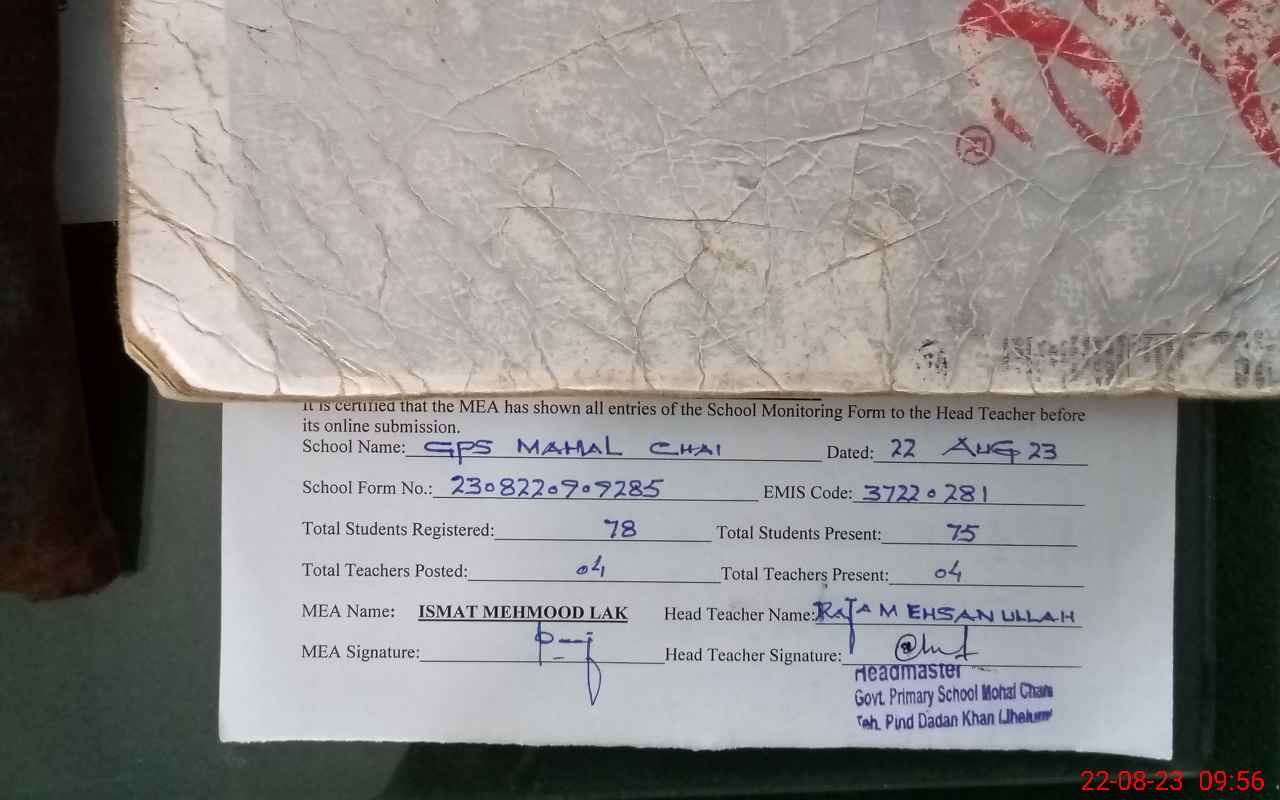 It is certified that the MEA has shown all entries of the School Monitoring Form to the Head Teacher before
its online submission.
School Name: GPS MAHAL CHAI Dated: 22 AUG 23
School Form No.: 2308220909285 EMIS Code: 37220281
Total Students Registered: 78 Total Students Present: 75
Total Teachers Posted: 04 Total Teachers Present: 04
MEA Name: ISMAT MEHMOOD LAK Head Teacher Name: RAJA M EHSAN ULLAH
MEA Signature: Head Teacher Signature:
Headmaster
Govt. Primary School Mohal Chai
Teh. Pind Dadan Khan (Jhelum)
22-08-23 09:56